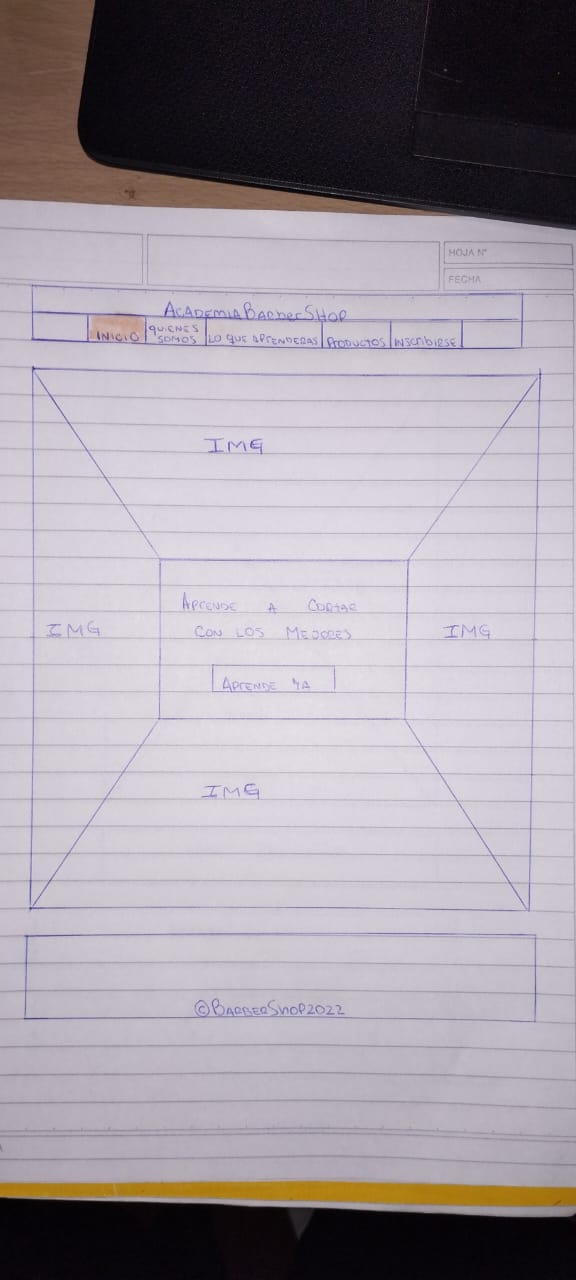 HOJA N°
FECHA
ACADEMIA BARBER SHOP
INICIO
QUIENES SOMOS
LO QUE APRENDERAS
PRODUCTOS
INSCRIBIRSE
IMG
IMG
APRENDE A CORTAR
CON LOS MEJORES
IMG
APRENDE YA
IMG
©BARBERSHOP2022